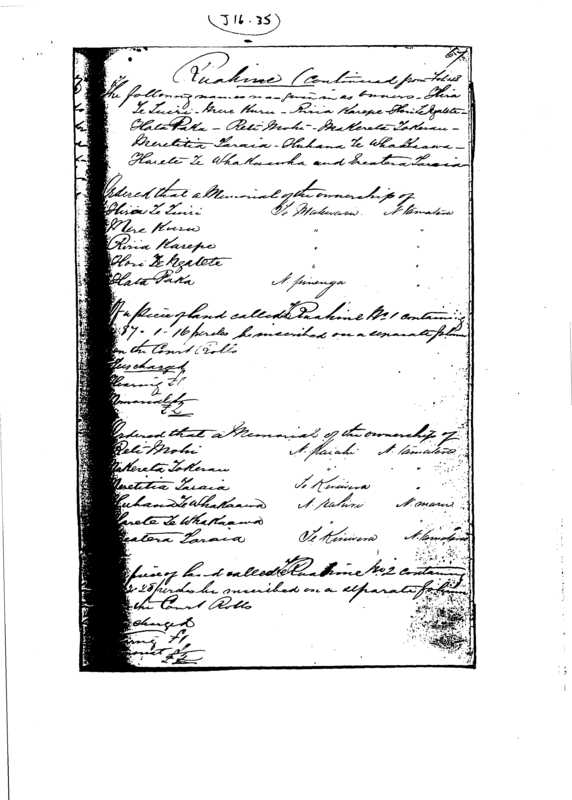 J16.35
67
Ruakine (Continued from Fol
The following names given in as owners - Hira
Te Tuiri - Mere Kuru - Riria Karepe - Hori Te Ngatete -
Hata Paka - Reti Mohi - Makereta Tokerau -
Meretitia Taraia - Huhana Te Whakaawa -
Harete Te Whakaawha and Taraia
Ordered that a Memorial of the ownership of
Hira Te Tuiri Te N. tamatera
Mere Kuru " "
Riria Karepe " "
Hori Te Ngatete " "
Hata Paka N. pinenga "
Of a piece of land called Ruakine No 1 containing
87 - 1 - 16 perches be inscribed on a separate folium
on the Court Rolls
Fees charged
Hearing £1
Memorial £1
£2
Ordered that a Memorial of the ownership of
Reti Mohi N. N. tamatera
Makereta Tokerau " "
Meretitia Taraia Te Kiriwera "
Huhana Te Whakaawa N. N. maru
Harete Te Whakaawa " "
Taraia Te Kiriwera N. tamatera
piece of land called Ruakine No 2 containing
28 perches be inscribed on a separate folium
the Court Rolls
charged
£1
£2